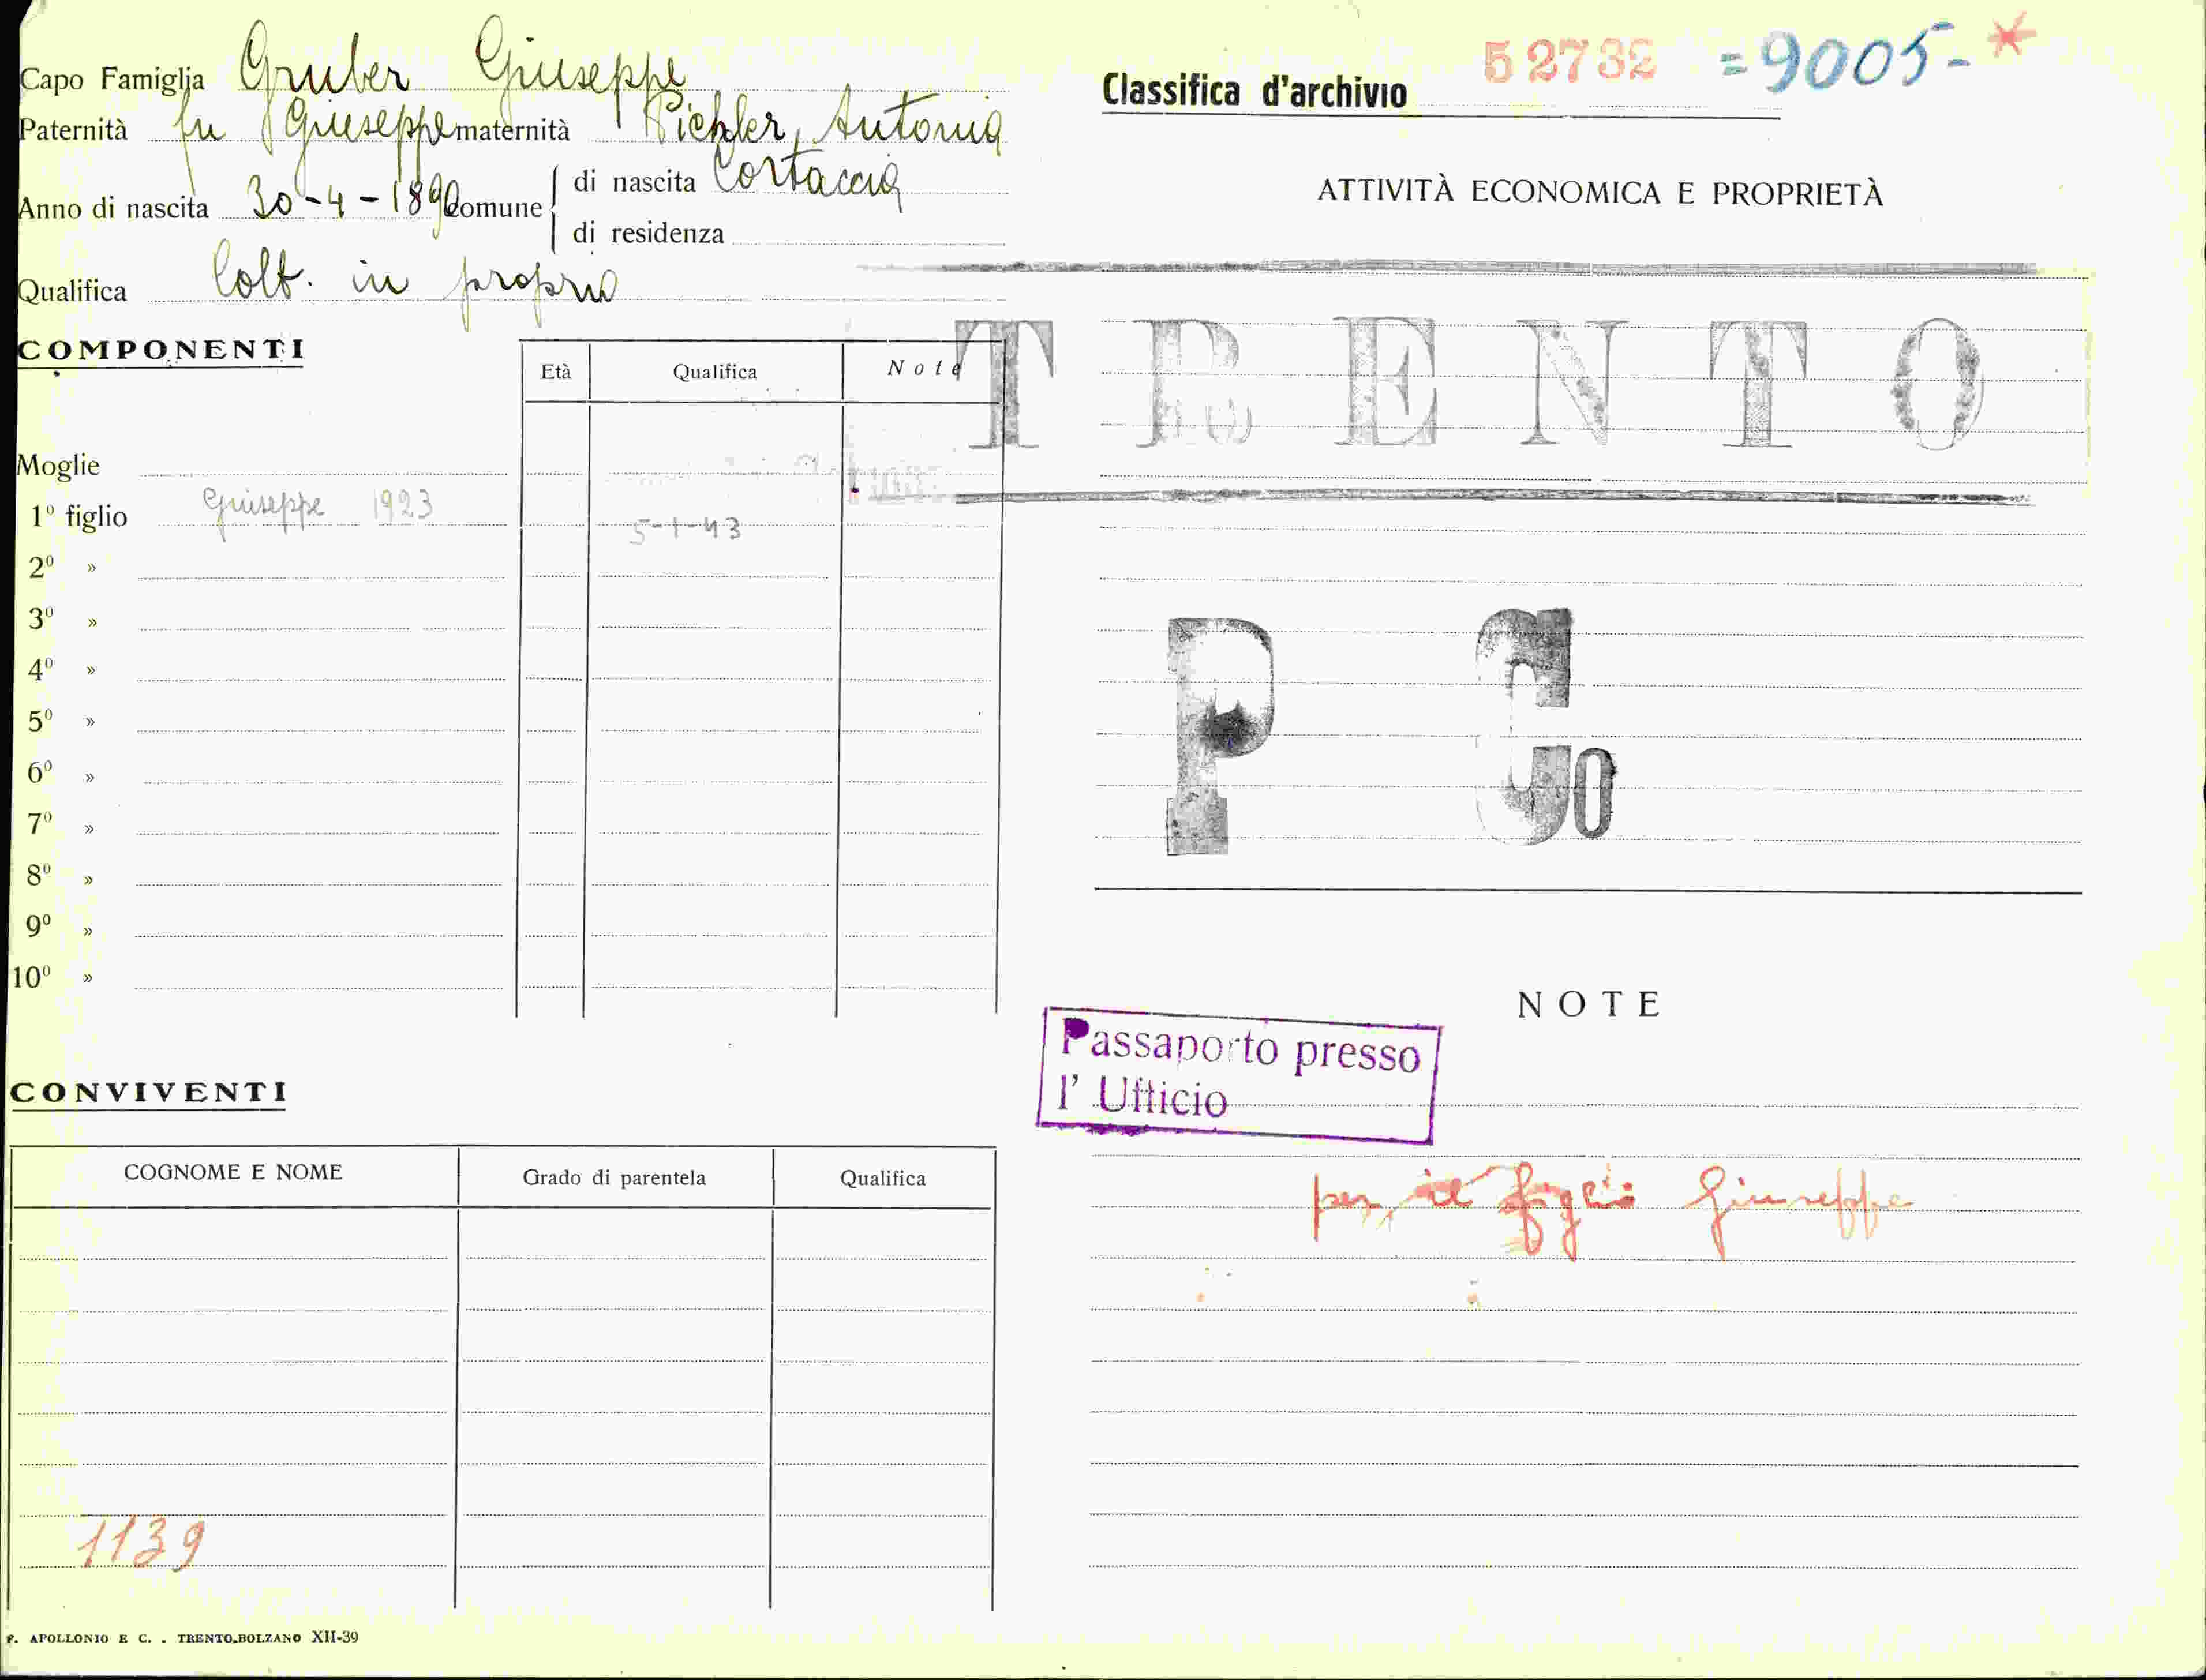 Capo Famiglia Gruber Giuseppe
Paternità fu Giuseppe maternità Pichler Antonia
Anno di nascita 30-4-1890 Comune di nascita Cortaccia
di residenza
Qualifica Colt. in proprio
COMPONENTI
Età Qualifica Note
Moglie
1º figlio Giuseppe 1923 5-1-43
2º »
3º »
4º »
5º »
6º »
7º »
8º »
9º »
10º »
CONVIVENTI
COGNOME E NOME Grado di parentela Qualifica
1139
P. APOLLONIO E C. - TRENTO-BOLZANO XII-39
Classifica d'archivio 52732 =9005- *
ATTIVITÀ ECONOMICA E PROPRIETÀ
TRENTO
P Co
NOTE
Passaporto presso
l' Ufficio
per il figlio Giuseppe